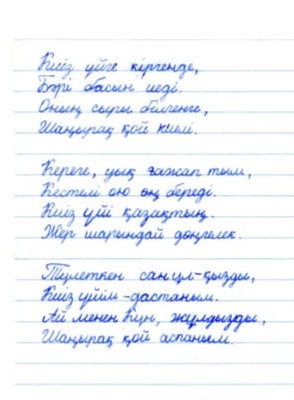 Киіз үйге кіргенде,
Бәрі басын иеді.
Оның сыры білгенге,
Шаңырақ қой киелі.
Кереге, уық ғажап тым,
Кестелі ою өң береді.
Киіз үйі қазақтың.
Жер шарындай дөңгелек.
Түлеткен сан ұл-қызды,
Киіз үйім - дастаным.
Ай менен Күн, жұлдызды,
Шаңырақ қой аспаным.